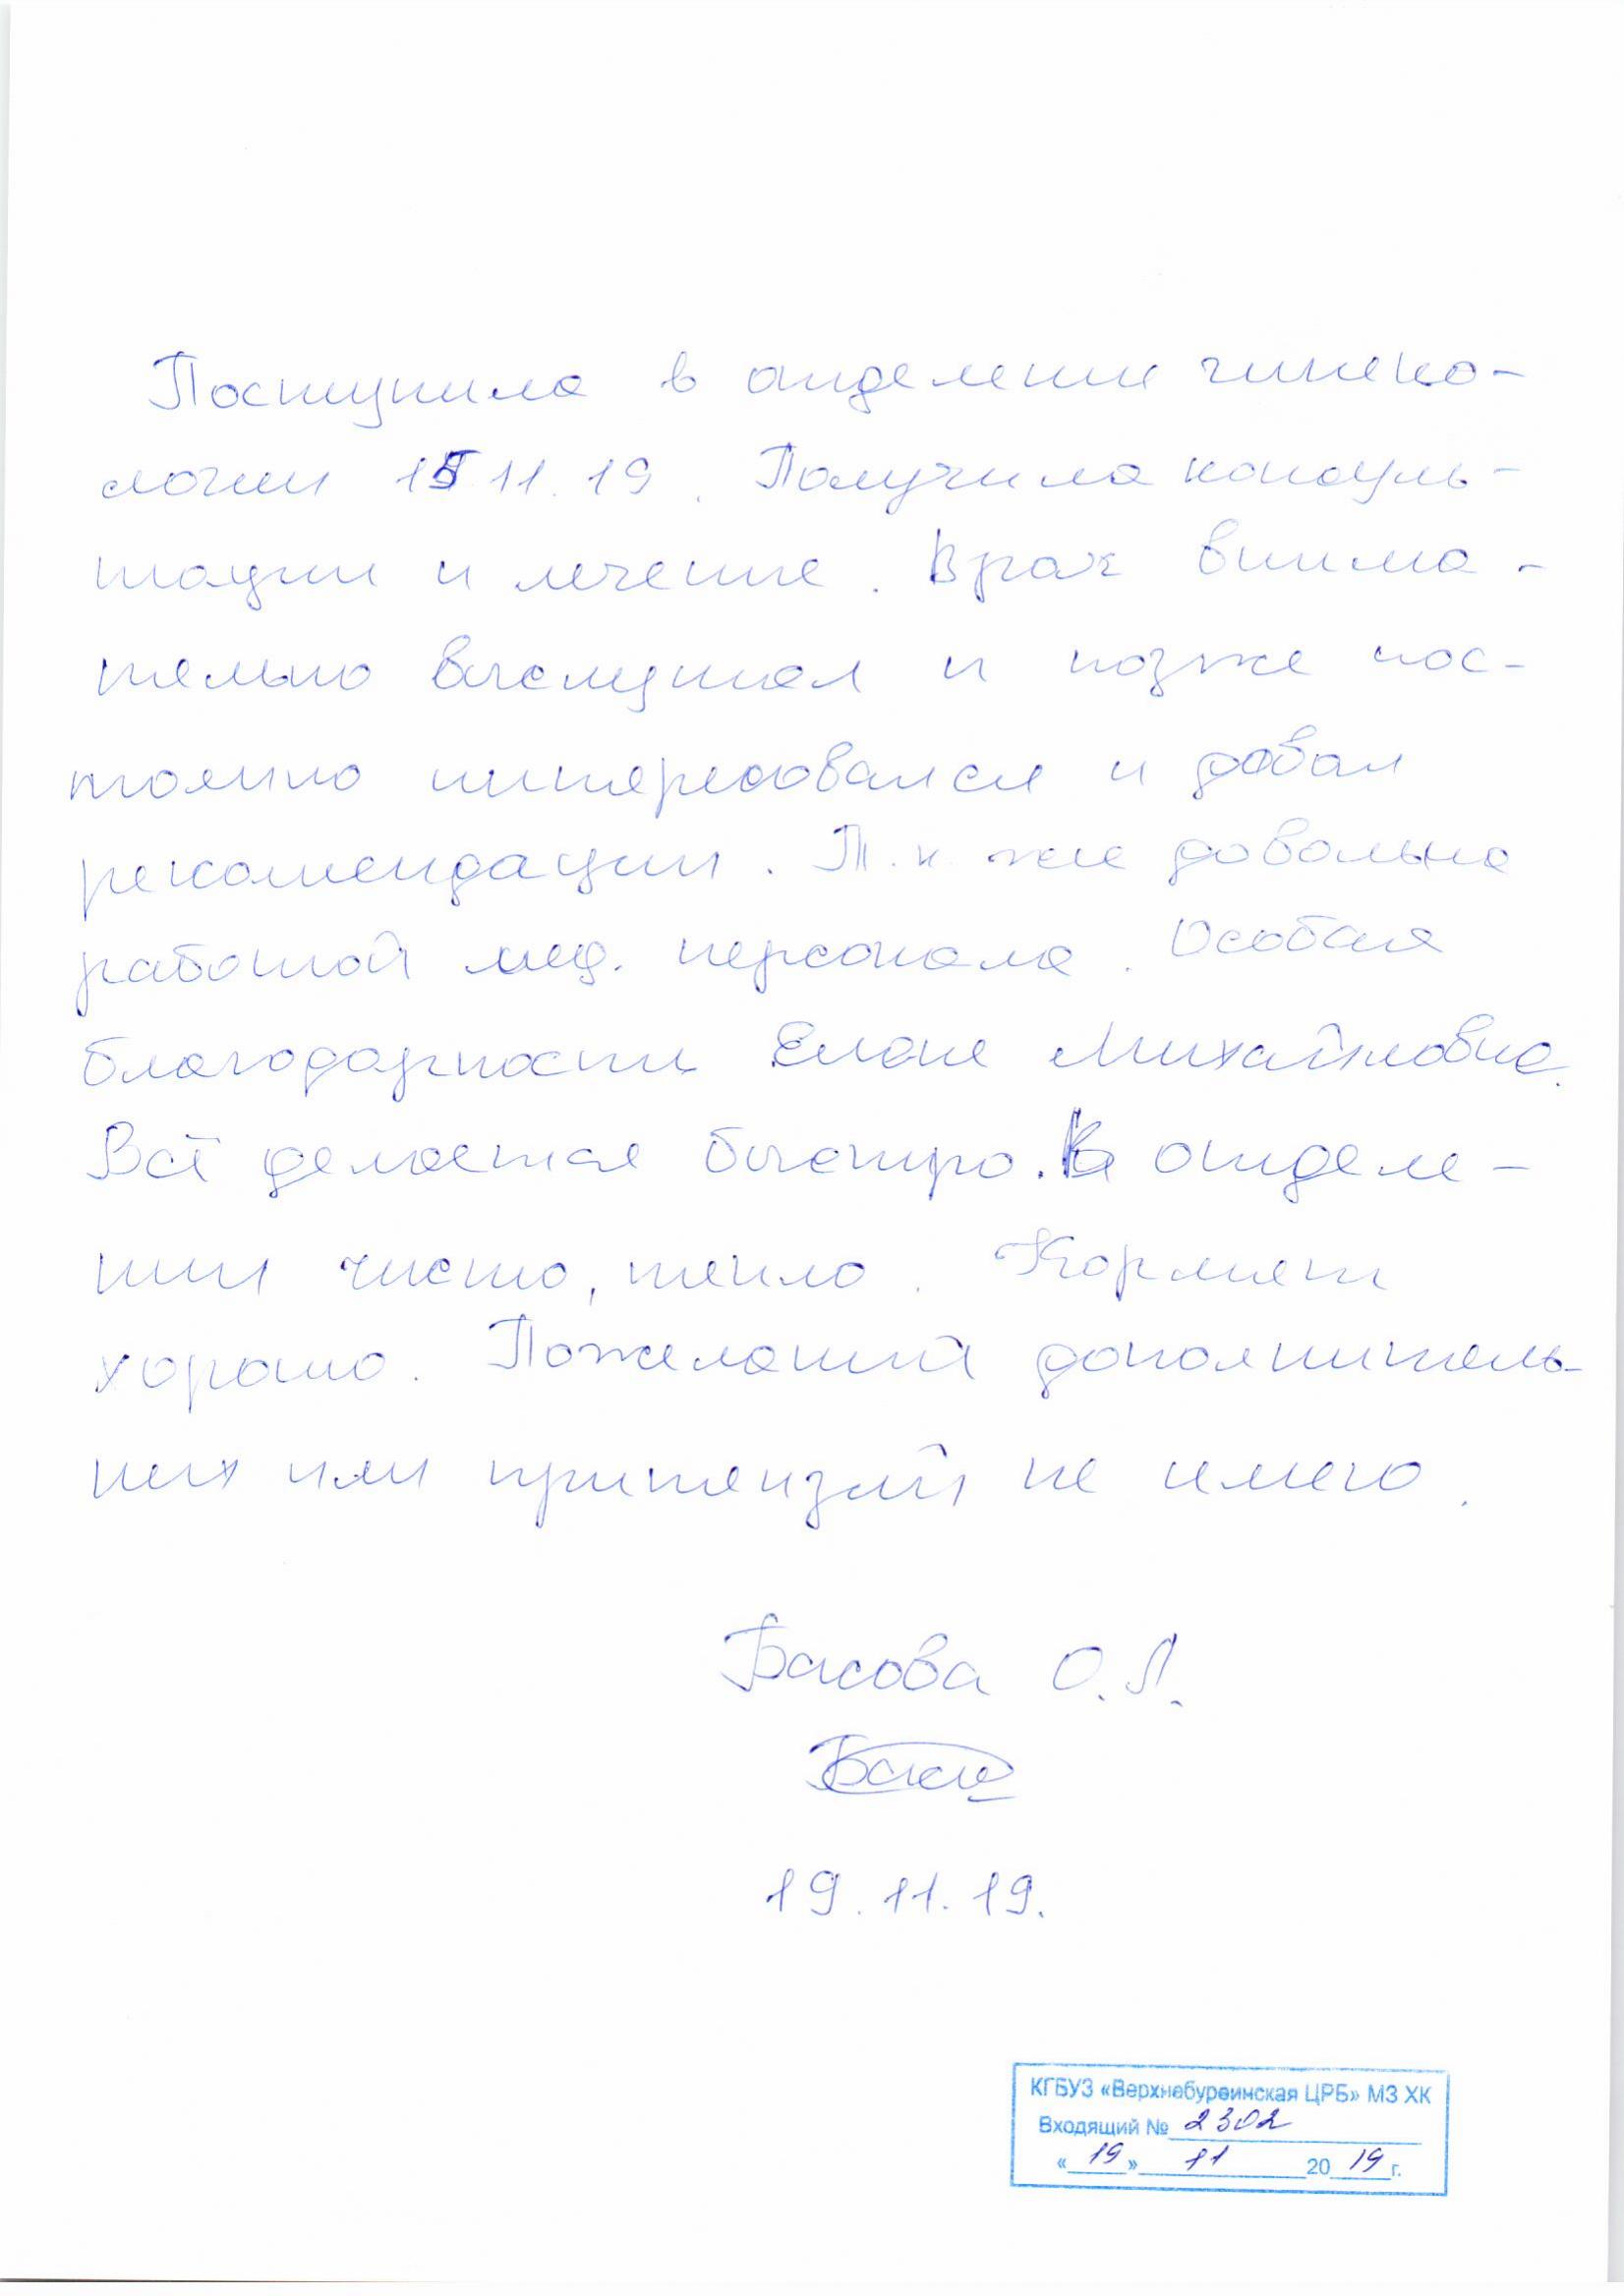 Поступила в отделение гинеко-
логии 15 11.19. Получила консуль-
тации и лечение. Врач внима-
тельно выслушал и позже пос-
тоянно интересовался и давал
рекомендации. Т.к же довольна
работой мед. персонала. Особая
благодарность Елене Михайловне.
Всё делается быстро. В отделе-
нии чисто, тепло. Кормят
хорошо. Пожеланий дополнитель-
ных или притензий не имею.
Басова О.Л.
19.11.19.
КГБУЗ «Верхнебуреинская ЦРБ» МЗ ХК
Входящий № 2302
«19» 11 2019г.